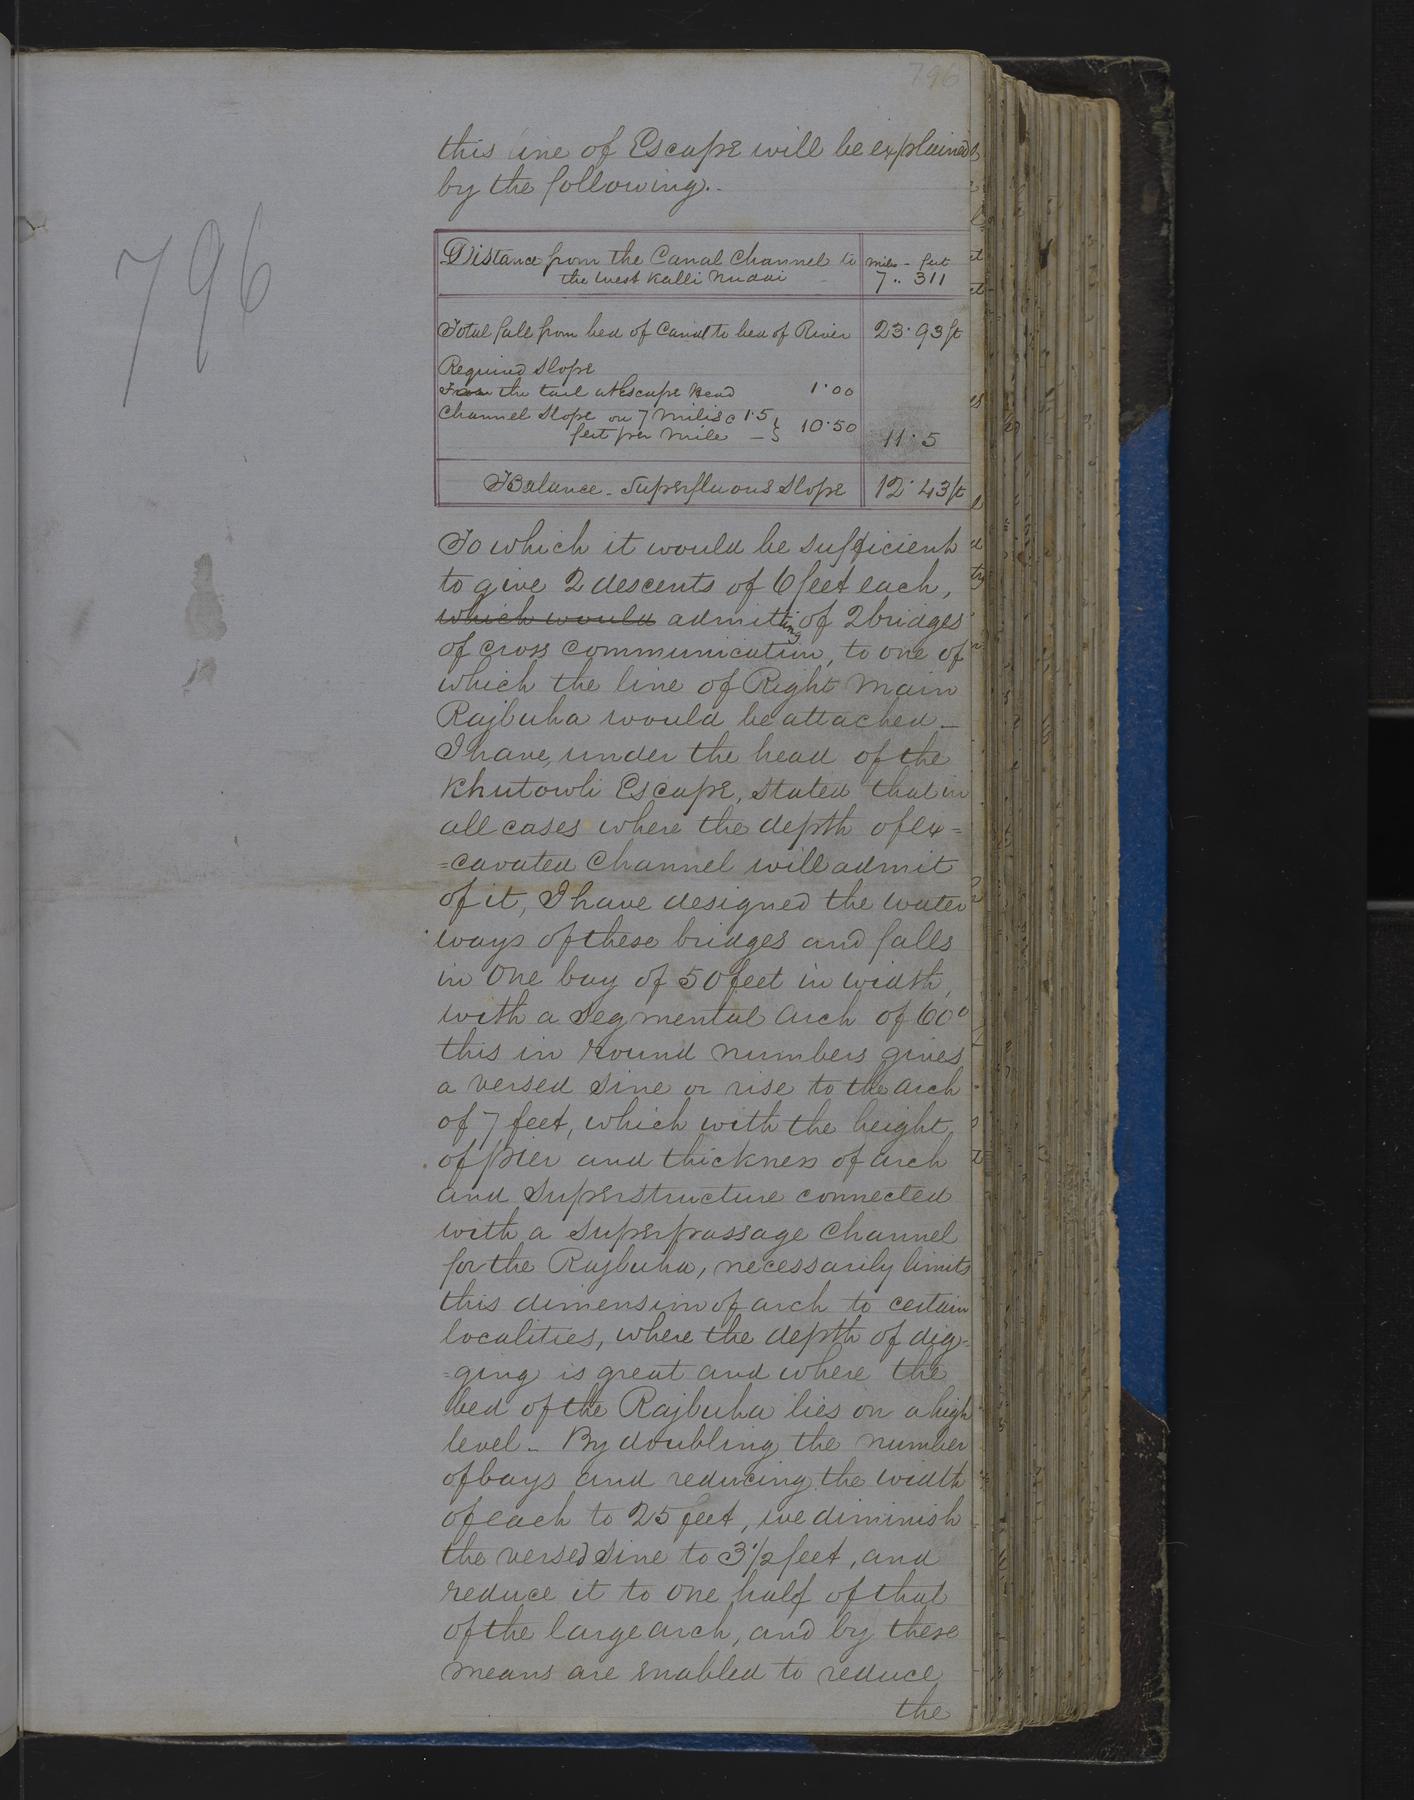 796
796
this line of Escape will be explained
by the following.-
Distance from the Canal Channel to
the West Kalli Nuddi
Miles - feet
7 .. 311
Total fall from bed of Canal to bed of River 23.93 ft
Required Slope
From the tail at Escape head 1.00
Channel Slope on 7 Miles @ 1.5
feet per Mile — 10.50
11.5
Balance - Superfluous Slope 12.43 ft
To which it would be sufficient
to give 2 descents of 6 feet each,
which would admitting of 2 bridges
of cross communication, to one of
which the line of Right Main
Rajbuha would be attached —
I have, under the head of the
Khutowli Escape, stated that in
all cases where the depth of ex=
=cavated Channel will admit
of it, I have designed the water
ways of these bridges and falls
in one bay of 50 feet in width,
with a Segmental Arch of 60°
this in round numbers gives
a versed sine or rise to the arch
of 7 feet, which with the height
of pier and thickness of arch
and Superstructure connected
with a Superpassage Channel
for the Rajbuha, necessarily limits
this dimension of arch to certain
localities, where the depth of dig=
=ging is great and where the
bed of the Rajbuha lies on a high
level - By doubling the number
of bays and reducing the width
of each to 25 feet, we diminish
the versed Sine to 3 1/2 feet, and
reduce it to one half of that
of the large arch, and by these
means are enabled to reduce
the